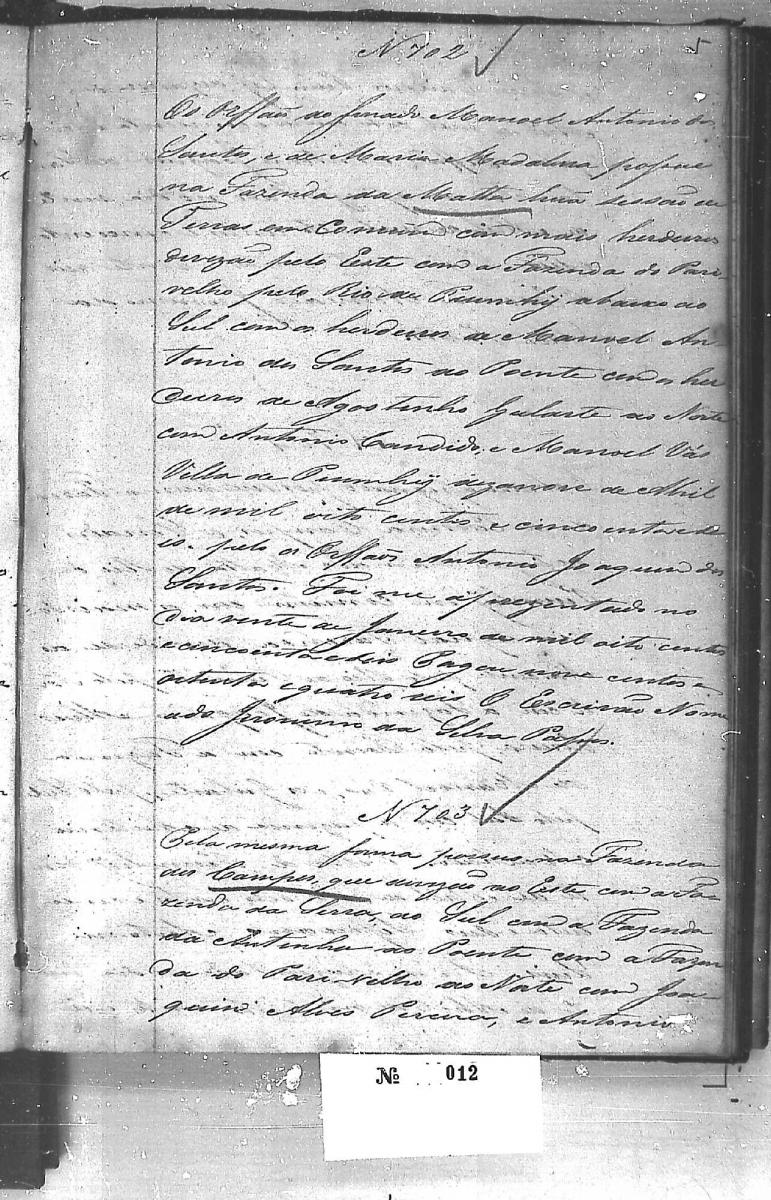 N 702
5
Os Orffãos do finado Manoel Antonio dos
Santos, e de Maria Madalena possue
na Fazenda da Matta huã sessão de
Terras em Comum com mais herdeiros
devizão pelo Este com a Fazenda do Pari
velho pelo Rio de Piumhÿ abaixo ao
Sul com os herdeiros de Manoel An
tonio dos Santos ao Poente com os her
deiros de Agostinho Gularte ao Norte
com Antonio Candido, e Manoel Vás
Villa de Piumhÿ dezanove de Abril
de mil oito centos e cincoenta e
is. pelo os Orffãos Antonio Joaquim dos
Santos. Foi me aprezentado no
dia vente de Janeiro de mil oito centos
e cincoenta e seis Pagou nove centos e
oitenta e quatro reis O Escrivão Nome
ado Jeronimo da Silva
N 703
Pela mesma forma possue na Fazenda
dos Campos que devizão ao Este com a Fa
zenda da Serra, ao Sul com a Fazenda
da ao Poente com a Fazen
da do Pari velho ao Norte com Joa
quim Alves Pereira, e Antonio
Nº 012